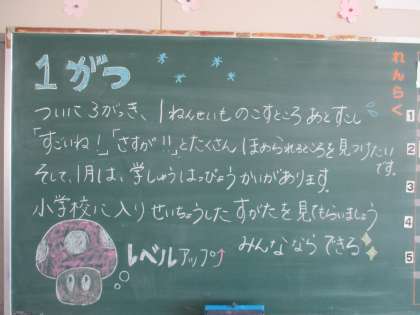 1がつ
ついに3がっき、1ねんせいものこすところあとすこし
「すごいね!」「さすが!!」とたくさんほめられるところを見つけたいです。
そして、1月は、学しゅうはっぴょうかいがあります。
小学校に入りせいちょうしたすがたを見てもらいましょう
レベルアップ↑
みんなならできる
れんらく
1
2
3
4
5